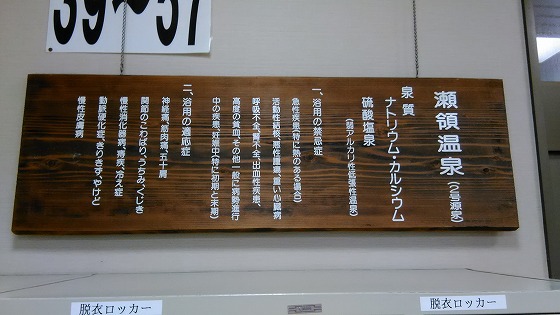 39～57
瀬領温泉(2号源泉)
泉質
ナトリウム・カルシウム
硫酸塩泉
(弱アルカリ性低張性温泉)
一、浴用の禁忌症
急性疾患(特に熱のある場合)
活動性結核、悪性腫瘍、重い心臓病
呼吸不全、腎不全、出血性疾患、
高度の貧血、その他一般に病勢進行
中の疾患、妊娠中(特に初期と末期)
二、浴用の適応症
神経痛、筋肉痛、五十肩
関節のこわばり、うちみ、くじき
慢性消化器病、痔疾、冷え症
動脈硬化症、きりきず、やけど
慢性皮膚病
脱衣ロッカー
脱衣ロッカー